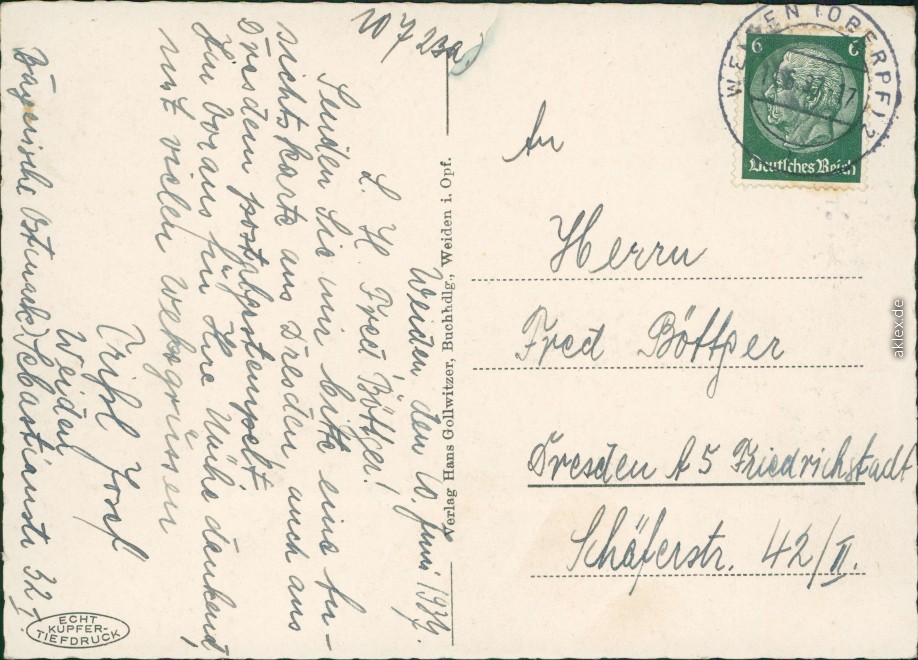 107 23a
Weiden, den 10. Juni 1937.
L. H. Fred Böttger!
Senden Sie mir bitte eine An-
sichtskarte aus Dresden auch aus
Dresden postabgestempelt.
Im Voraus für Ihre Mühe dankend,
mit vielen Weltsgrüssen
Josef
Weiden
Bayerische Ostmark, Sebastianstr. 32 I.
ECHT
KUPFER-
TIEFDRUCK
Verlag Hans Gollwitzer, Buchhdlg., Weiden i. Opf.
WEIDEN (OBERPF) 2
6 6
Deutsches Reich
An
Herrn
Fred Böttger
Dresden A 5 Friedrichstadt
Schäferstr. 42/II.
aklex.de